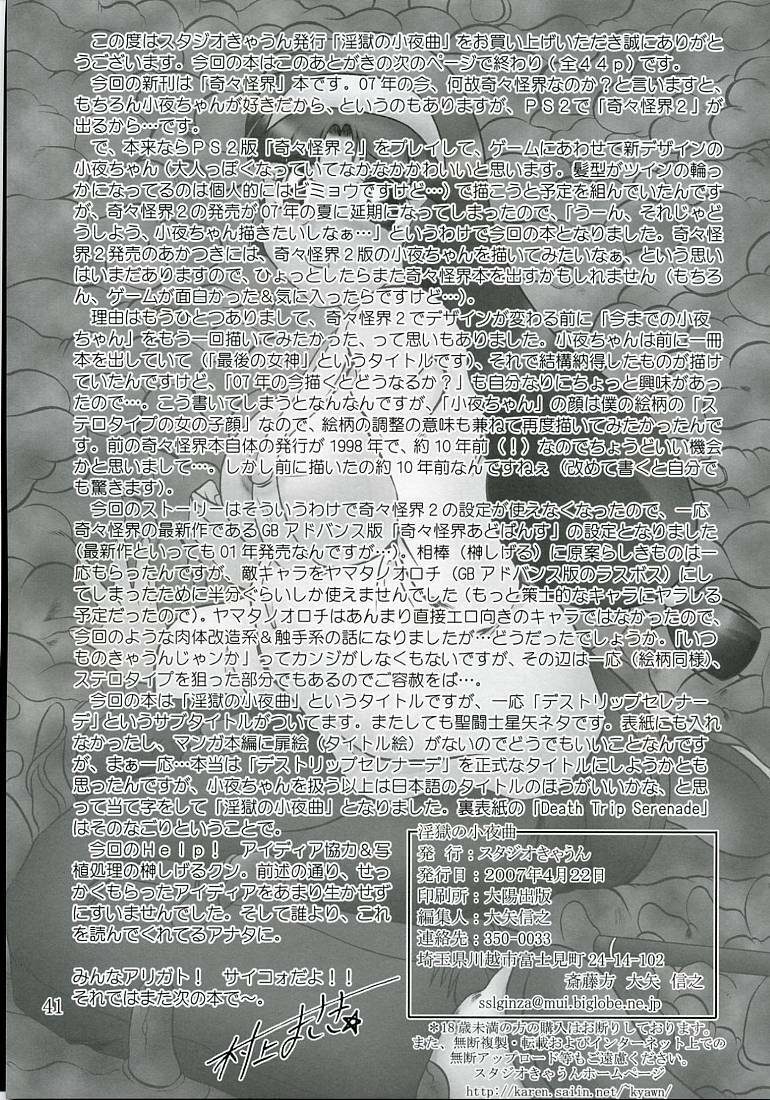 この度はスタジオきゃうん発行「淫獄の小夜曲」をお買い上げいただき誠にありがと
うございます。今回の本はこのあとがきの次のページで終わり（全４４ｐ）です。
今回の新刊は「奇々怪界」本です。０７年の今、何故奇々怪界なのか？と言いますと、
もちろん小夜ちゃんが好きだから、というのもありますが、ＰＳ２で「奇々怪界２」が
出るから…です。
で、本来ならＰＳ２版「奇々怪界２」をプレイして、ゲームにあわせて新デザインの
小夜ちゃん（大人っぽくなっていてなかなかかわいいと思います。髪型がツインの輪っ
かになってるのは個人的にはビミョウですけど…）で描こうと予定を組んでいたんです
が、奇々怪界２の発売が07年の夏に延期になってしまったので、「うーん、それじゃど
うしよう、小夜ちゃん描きたいしなぁ…」というわけで今回の本となりました。奇々怪
界２発売のあかつきには、奇々怪界２版の小夜ちゃんを描いてみたいなぁ、という思い
はいまだありますので、ひょっとしたらまた奇々怪界本を出すかもしれません（もちろ
ん、ゲームが面白かった＆気に入ったらですけど…）。
理由はもうひとつありまして、奇々怪界２でデザインが変わる前に「今までの小夜
ちゃん」をもう一回描いてみたかった、って思いもありました。小夜ちゃんは前に一冊
本を出していて（「最後の女神」というタイトルです）、それで結構納得したものが描け
ていたんですけど、「07年の今描くとどうなるか？」も自分なりにちょっと興味があっ
たので…。こう書いてしまうとなんなんですが、「小夜ちゃん」の顔は僕の絵柄の「ス
テロタイプの女の子顔」なので、絵柄の調整の意味も兼ねて再度描いてみたかったんで
す。前の奇々怪界本自体の発行が1998年で、約10年前（！）なのでちょうどいい機会
かと思いまして…。しかし前に描いたの約10年前なんですねぇ（改めて書くと自分で
も驚きます）。
今回のストーリーはそういうわけで奇々怪界２の設定が使えなくなったので、一応
奇々怪界の最新作であるGBアドバンス版「奇々怪界あどばんす」の設定となりました
（最新作といっても01年発売なんですが…）。相棒（榊しげる）に原案らしきものは一
応もらったんですが、敵キャラをヤマタノオロチ（GBアドバンス版のラスボス）にし
てしまったために半分くらいしか使えませんでした（もっと策士的なキャラにヤラレる
予定だったので）。ヤマタノオロチはあんまり直接エロ向きのキャラではなかったので、
今回のような肉体改造系＆触手系の話になりましたが…どうだったでしょうか。「いつ
ものきゃうんじゃンか」ってカンジがしなくもないですが、その辺は一応（絵柄同様）、
ステロタイプを狙った部分でもあるのでご容赦をば…。
今回の本は「淫獄の小夜曲」というタイトルですが、一応「デストリップセレナー
デ」というサブタイトルがついてます。またしても聖闘士星矢ネタです。表紙にも入れ
なかったし、マンガ本編に扉絵（タイトル絵）がないのでどうでもいいことなんです
が、まぁ一応…本当は「デストリップセレナーデ」を正式なタイトルにしようかとも
思ったんですが、小夜ちゃんを扱う以上は日本語のタイトルのほうがいいかな、と思
って当て字をして「淫獄の小夜曲」となりました。裏表紙の「Death Trip Serenade」
はそのなごりということで。
今回のＨｅｌｐ！　アイディア協力＆写
植処理の榊しげるクン。前述の通り、せっ
かくもらったアイディアをあまり生かせず
にすいませんでした。そして誰より、これ
を読んでくれてるアナタに。
みんなアリガト！　サイコォだよ！！
それではまた次の本で～。
村上まさき
淫獄の小夜曲
発　行：スタジオきゃうん
発行日：2007年4月22日
印刷所：大陽出版
編集人：大矢信之
連絡先：350-0033
埼玉県川越市富士見町 24-14-102
斎藤方　大矢　信之
sslginza@mui.biglobe.ne.jp
＊18歳未満の方の購入はお断りしております。
また、無断複製・転載およびインターネット上での
無断アップロード等もご遠慮ください。
スタジオきゃうんホームページ
http://karen.saiin.net/~kyawn/
41